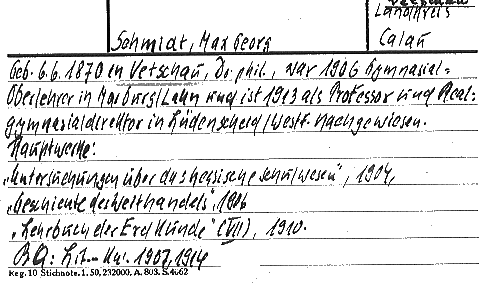 Vetschau
Landkreis
Schmidt, Max Georg
Calau
Geb. 6.6.1870 in Vetschau, Dr. phil., war 1906 Gymnasial-
Oberlehrer in Marburg/Lahn und ist 1913 als Professor und Real-
gymnasialdirektor in Lüdenscheid/Westf. nachgewiesen.
Hauptwerke:
„Untersuchungen über das hessische Schulwesen", 1904,
„Geschichte des Welthandels", 1906
„Lehrbuch der Erdkunde" (VII), 1910.
BQ: Lit.-Kal. 1907, 1914
Reg. 10 Stichnote. 1. 50, 232000. A. 803. S. 4662